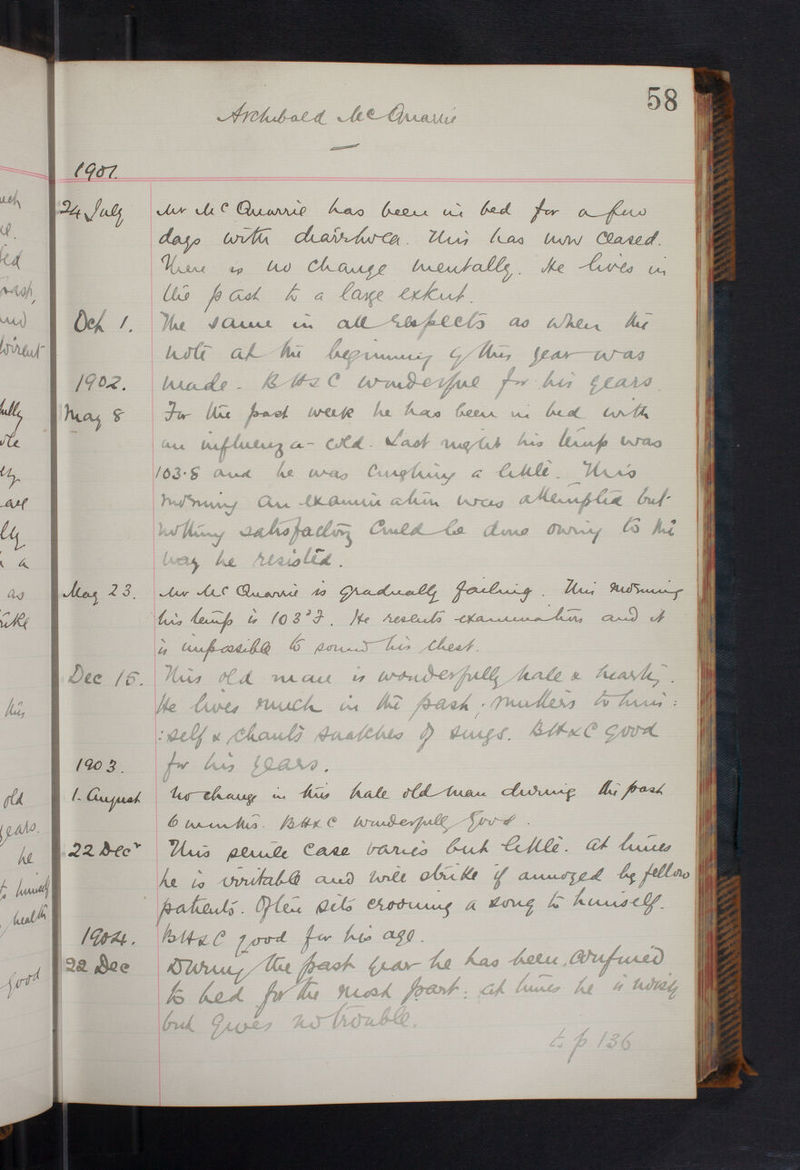 58
Archibald McQuarrie
1901.
24 July Mr McQuarrie has been in bed for a few
days with diarrhoea. This has now ceased.
There is no change mentally. He lives in
the past to a large extent.
Oct 1. The same in all respects as when the
note at the beginning of this year was
1902. made - BH&C wonderful for his years.
May 8 For the past week he has been in bed with
an influenza-cold. Last night his temp was
103.8 and he was coughing a little. This
morning an examination was attempted but
nothing satisfactory could be done owing to the
way he resisted.
May 23. Mr McQuarrie is gradually failing. This morning
his temp is 103°F. He resents examination and it
is impossible to sound his chest.
Dec 15. This old man is wonderfully hale & hearty.
He lives much in the past; mutters to him:
:self & chants snatches of songs. BH&C good
1903. for his years.
1. August No change in this hale old man during the past
6 months. BH&C wonderfully good.
22 Decr This senile case varies but little. At times
he is irritable and will strike if annoyed by fellow
patients. Often sits crooning a song to himself.
1904. BH&C good for his age.
22 Dec During the past year he has been confined
to bed for the most part: at times he is noisy
but gives no trouble.
to p 136